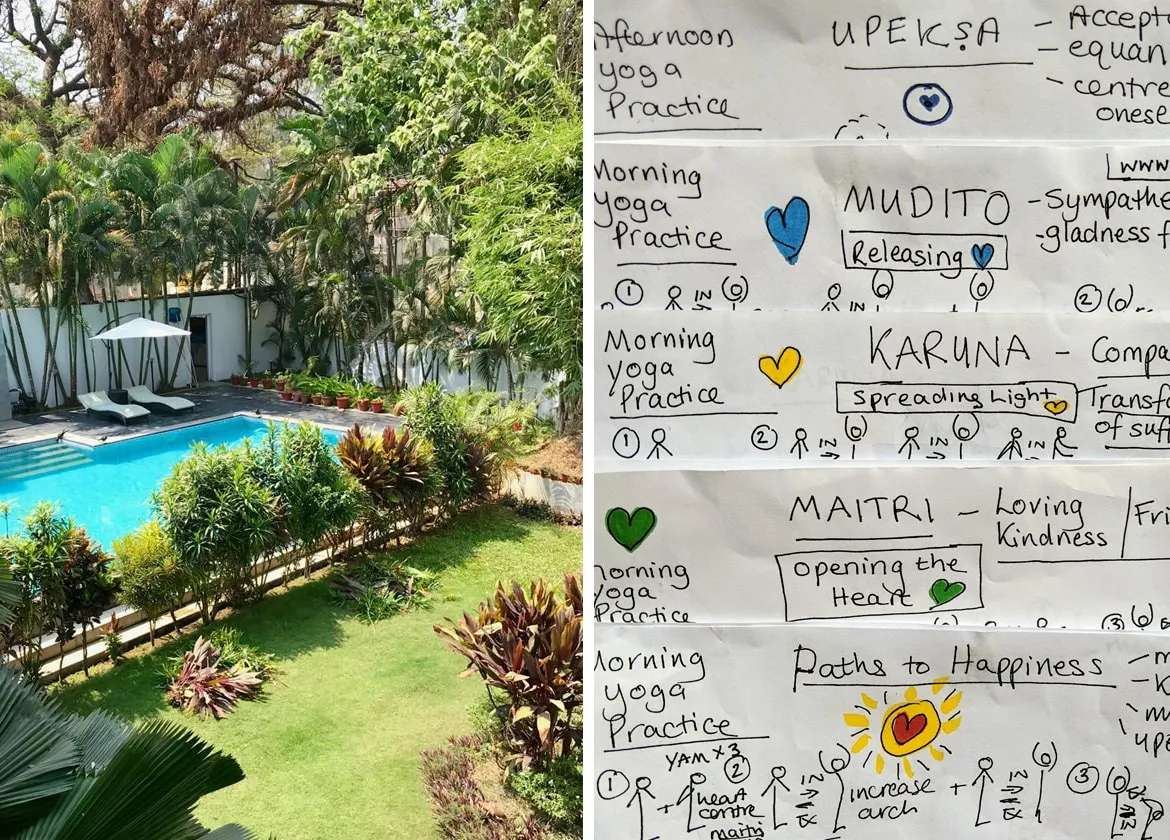 Afternoon
yoga
Practice
UPEKṢA
- Accept
- equan
- centre
onese
Morning
yoga
Practice
MUDITO
Releasing
www
- Sympathe
- gladness f
1
IN
IN
+
2
Morning
yoga
Practice
KARUNA -
Spreading Light
Compa
Transfo
of suff
1
2
IN
IN
IN
MAITRI -
Loving
Kindness
Fri
opening the
Heart
Morning
yoga
Practice
3
Morning
yoga
Practice
Paths to Happiness
YAM x 3
1
+
heart
centre
maitri
2
IN
EX
increase
arch
+
IN
EX
3